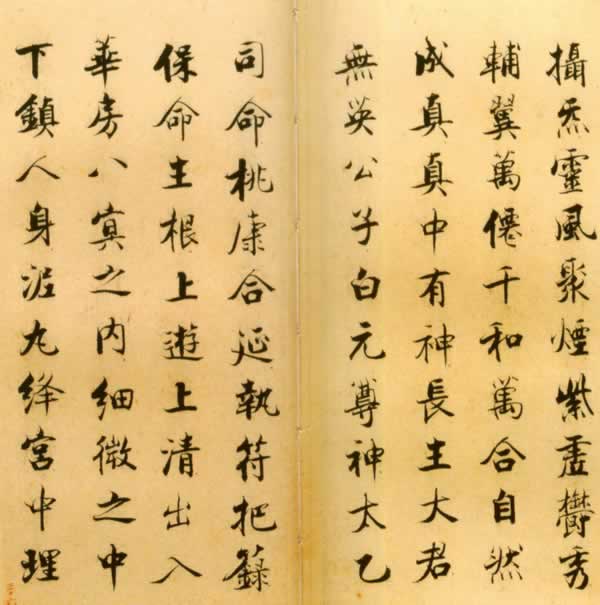 攝炁靈風聚煙紫虛鬱秀
輔翼萬僊千和萬合自然
成真真中有神長生大君
無英公子白元尊神太乙
司命桃康合延執符把籙
保命生根上遊上清出入
華房八寘之内細微之中
下鎮人身泥丸絳宮中理